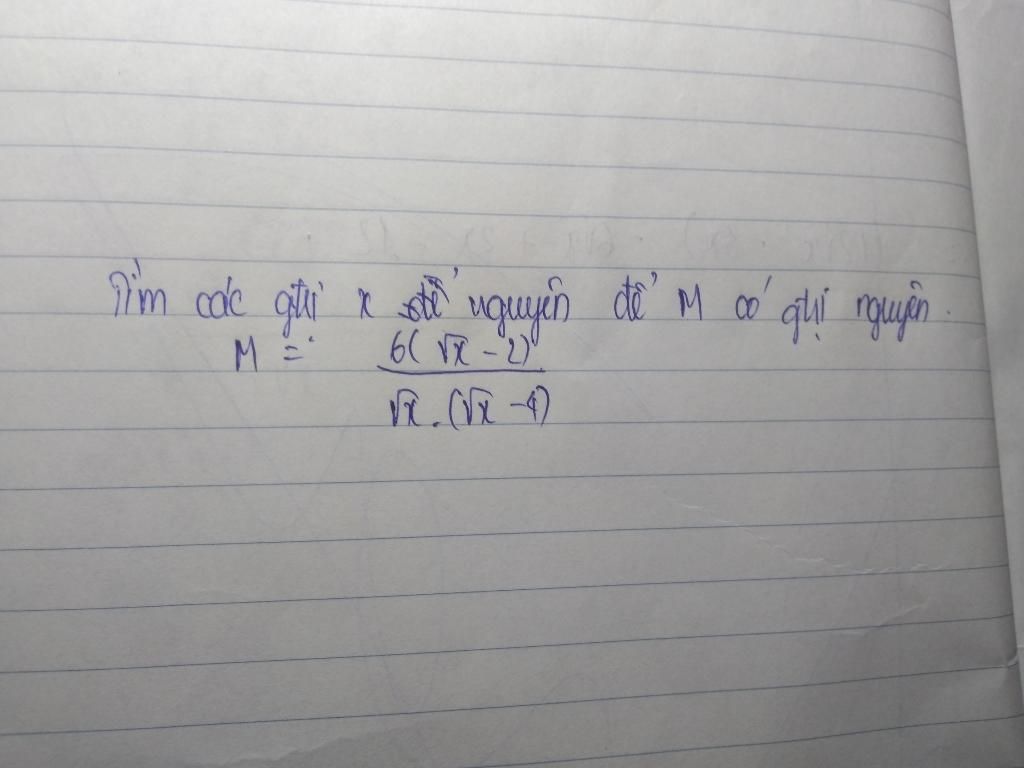 Tìm các gtrị x để nguyên để M có gtrị nguyên.
M = 6(√x - 2) / √x . (√x - 4)